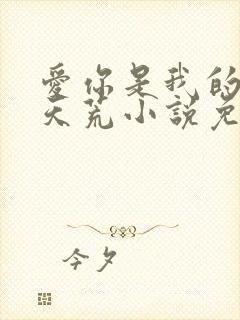 愛你是我的
天荒小說免
今夕